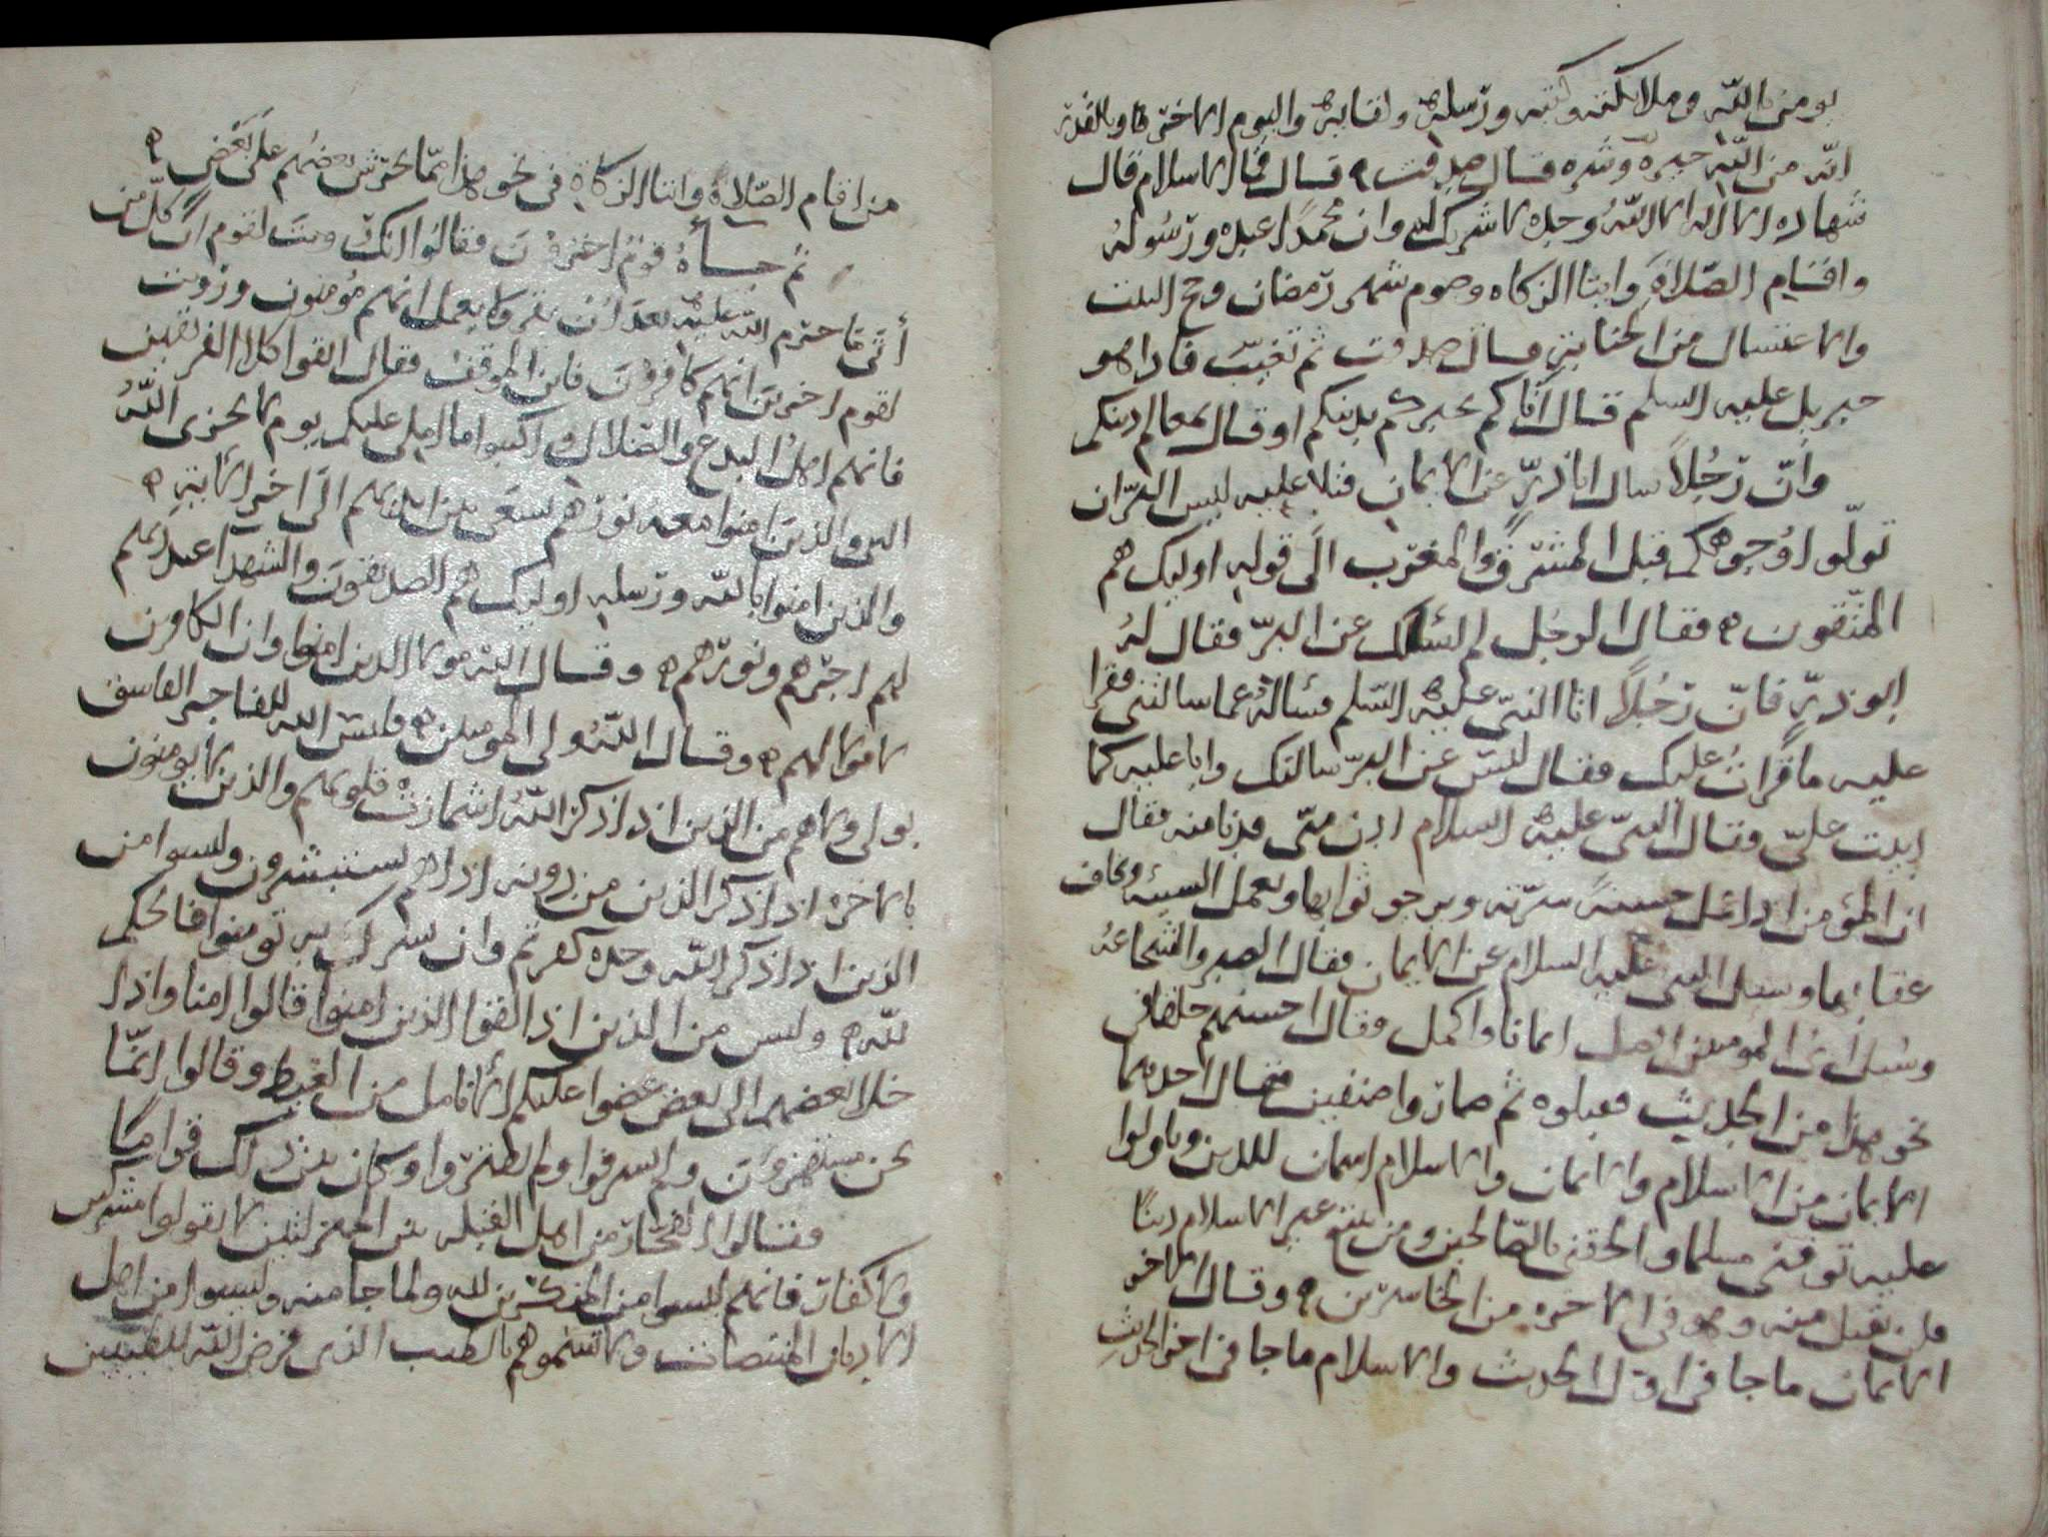 يومن بالله وملايكته وكتبه ورسله ولقايه واليوم الاخر وبالقدر
انه من الله خيره وشره قال صدقت ه قال فما الاسلام قال
شهاده الا اله الا الله وحده لا شريك له وان محمدا عبده ورسوله
واقام الصلاة وايتا الزكاه وصوم شهر رمضان وحج البيت
والاغتسال من الجنابة قال صدقت ثم تغيب فاذا هو
جبريل عليه السلم قال اتاكم يخبركم بدينكم او قال بمعالم دينكم
وان رجلا سال ابا ذر عن الايمان فتلا عليه ليس البر ان
تولوا وجوهكم قبل المشرق والمغرب الى قوله اوليك هم
المتقون ه فقال الرجل لم اسلك عن البر فقال له
ابو ذر فان رجلا اتا النبي عليه السلم فساله عما سالتني فقرا
عليه ما قرات عليك فقال ليس عن البر سالتك وابا عليه كما
ابيت علي فقال النبي عليه السلام ادن مني فدنا منه فقال
ان المؤمن اذا عمل حسنة سرته ويرجو ثوابها ويعمل السيئه ويخاف
عقابها وسيل النبي عليه السلام عن الايمان فقال الصبر والشجاعه
وسيل اي المومنين افضل ايمانا واكمل فقال احسنهم خلقا في
نحو هذا من الحديث فقبلوه ثم صاروا صنفين فقال احدهما
الايمان من الاسلام والايمان والاسلام اسمان للدين وتاولوا
عليه توفني مسلما والحقني بالصالحين ومن يبتغ غير الاسلام دينا
فلن يقبل منه وهو في الاخره من الخاسرين ه وقال الاخر
الايمان ما جا في اول الحديث والاسلام ما جا في اخر الحديث
من اقام الصلاة وايتا الزكاة في نحو هذا مما يحرش بعضهم على بعض ه
ثم جاه قوم اخرون فقالوا انك رويت لقوم ان كل من
أتى ما حرم الله عليه بعد ان يقر بما يعمل انهم مؤمنون ورويت
لقوم اخرين انهم كافرون فاين الموقف فقال القوا كلا الفريقين
فانهم اهل البدع والضلال واكتبوا ما املي عليكم يوم لا يخزي الله
النبي والذين امنوا معه نورهم يسعى بين ايديهم الى اخر الاية ه
والذين امنوا بالله ورسله اوليك هم الصديقون والشهدا عند ربهم
لهم اجرهم ونورهم ه وقال الله مولا الذين امنوا وان الكافرين
لا مولا لهم ه وقال الله ولي المومنين ه فليس الله للفاجر الفاسق
بولي ولا هم من الذين اذا ذكر الله اشمازت قلوبهم والذين لا يومنون
بالاخره اذا ذكر الذين من دونه اذا هم يستبشرون وليسوا من
الذين اذا ذكر الله وحده كفرتم وان يشرك به تومنوا فالحكم
لله ه وليس من الذين اذا لقوا الذين امنوا قالوا امنا واذا
خلا بعضهم الى بعض عضوا عليكم الانامل من الغيظ وقالوا انما
نحن مستهزون ولم يسرفوا ولم يقتروا وكان بين ذلك قواما
وقالوا الفجار من اهل القبله بين المنزلتين لا تقولوا مشركين
ولا كفار فانهم ليسوا من المنكرين لله ولما جا منه وليسوا من اهل
الاديان ولا تسموهم بالطيب الذي فرض الله للطيبين